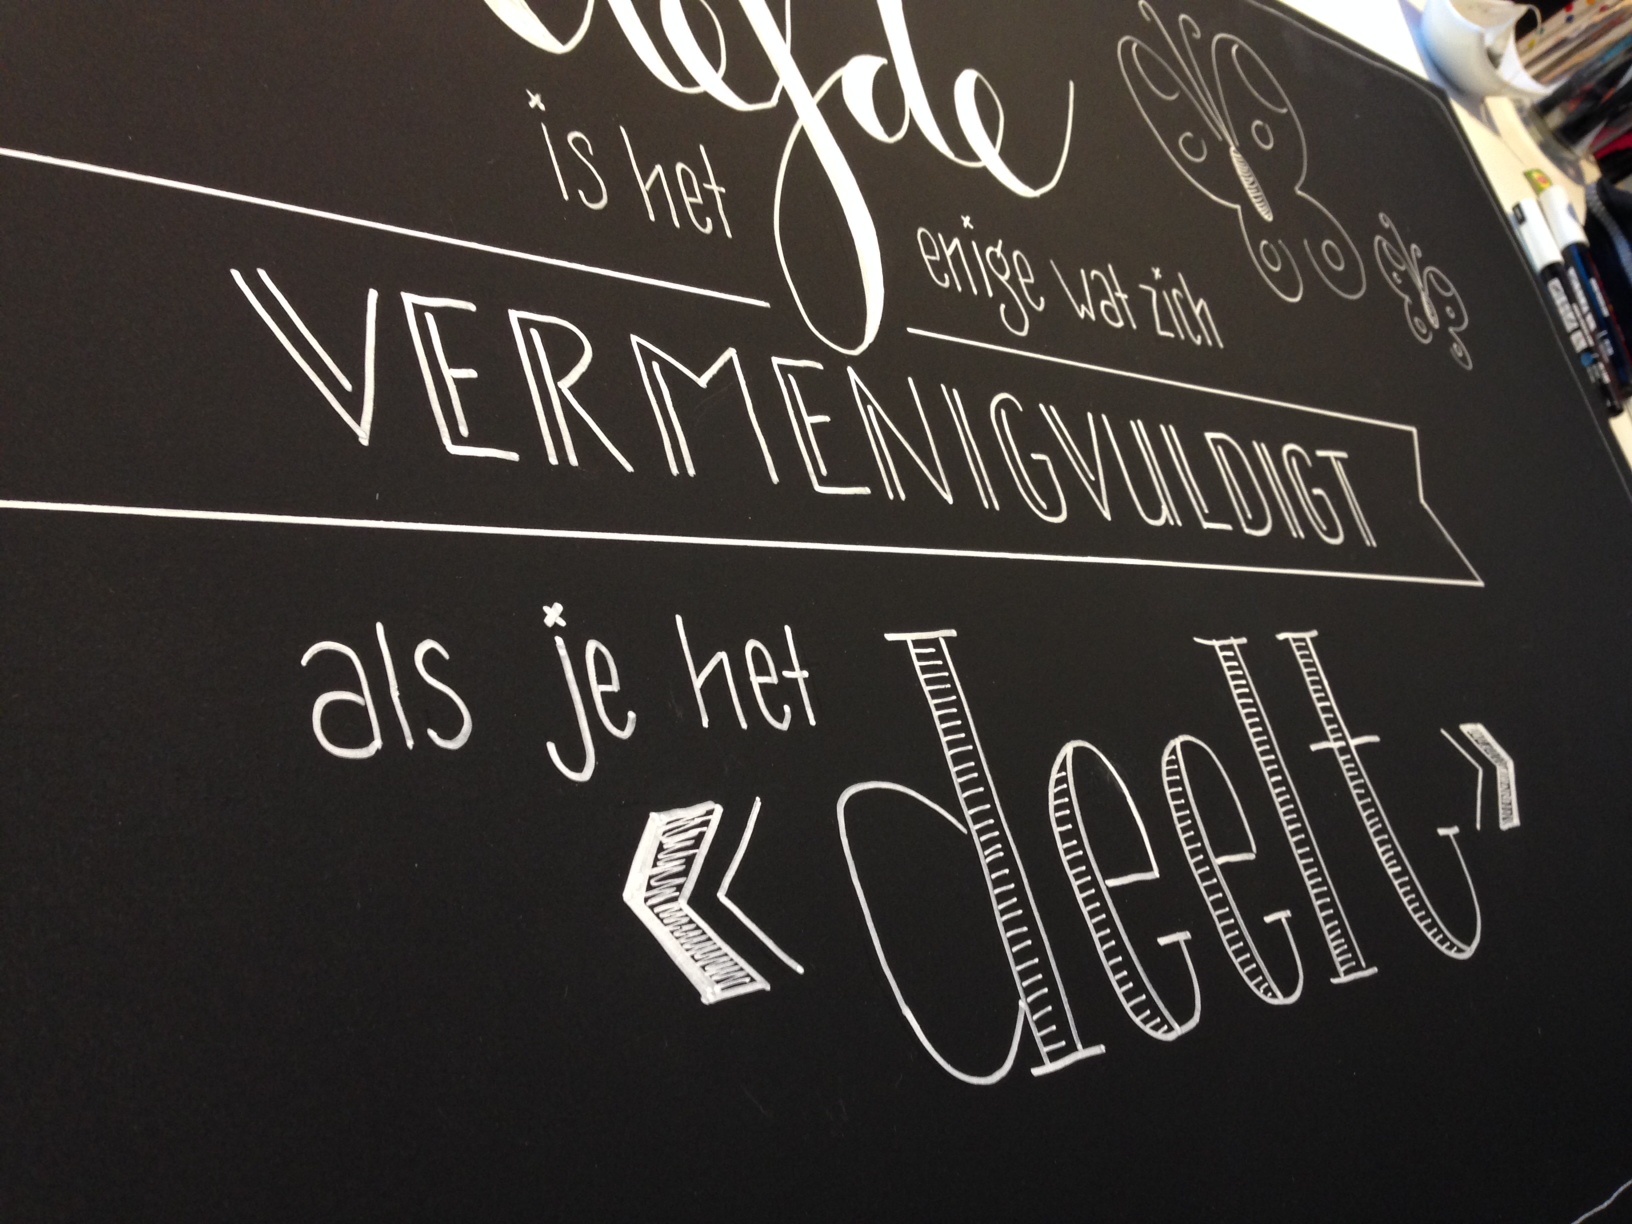 liefde
is het
enige wat zich
VERMENIGVULDIGT
als je het
« deelt »